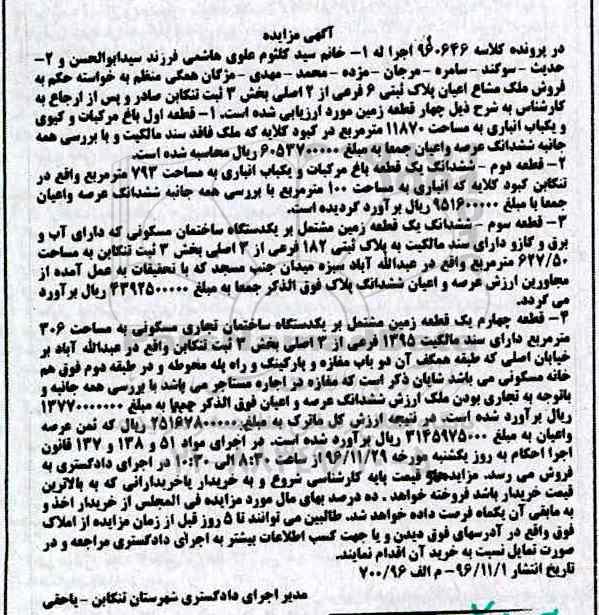 آگهی مزایده
در پرونده کلاسه ۹۶۰۶۴۶ اجرا له ۱- خانم سید کلثوم علوی هاشمی فرزند سیدابوالحسن و ۲-
حدیث - سوگند - سامره - مرجان - مژده - محمد - مهدی - مژگان همگی منظم به خواسته حکم به
فروش ملک مشاع اعیان پلاک ثبتی ۶ فرعی از ۲ اصلی بخش ۳ ثبت تنکابن صادر و پس از ارجاع به
کارشناس به شرح ذیل چهار قطعه زمین مورد ارزیابی شده است. ۱- قطعه اول باغ مرکبات و کیوی
و یکباب انباری به مساحت ۱۱۸۷۰ مترمربع در کبود کلایه که ملک فاقد سند مالکیت و با بررسی همه
جانبه ششدانگ عرصه واعیان جمعا به مبلغ ۶۰۵۳۷۰۰۰۰۰ ریال محاسبه شده است.
۲- قطعه دوم - ششدانگ یک قطعه باغ مرکبات و یکباب انباری به مساحت ۷۹۳ مترمربع واقع در
تنکابن کبود کلایه که انباری به مساحت ۱۰۰ مترمربع با بررسی همه جانبه ششدانگ عرصه واعیان
جمعا با مبلغ ۹۵۱۶۰۰۰۰۰ ریال برآورد گردیده است.
۳- قطعه سوم - ششدانگ یک قطعه زمین مشتمل بر یکدستگاه ساختمان مسکونی که دارای آب و
برق و گازو دارای سند مالکیت به پلاک ثبتی ۱۸۲ فرعی از ۳ اصلی بخش ۳ ثبت تنکابن به مساحت
۶۲۷/۵۰ مترمربع واقع در عبدالله آباد سبزه میدان جنب مسجد که با تحقیقات به عمل آمده از
مجاورین ارزش عرصه و اعیان ششدانگ پلاک فوق الذکر جمعا به مبلغ ۴۳۹۲۵۰۰۰۰۰ ریال برآورد
می گردد.
۴- قطعه چهارم یک قطعه زمین مشتمل بر یکدستگاه ساختمان تجاری مسکونی به مساحت ۳۰۶
مترمربع دارای سند مالکیت ۱۳۹۵ فرعی از ۳ اصلی بخش ۳ ثبت تنکابن واقع در عبدالله آباد بر
خیابان اصلی که طبقه همکف آن دو باب مغازه و پارکینگ و راه پله مغروطه و در طبقه دوم فوق هم
خانه مسکونی می باشد شایان ذکر است که مغازه در اجاره مستاجر می باشد با بررسی همه جانبه و
باتوجه به تجاری بودن ملک ارزش ششدانگ عرصه و اعیان فوق الذکر جمعا به مبلغ ۱۳۷۷۰۰۰۰۰۰۰
ریال برآورد شده است. در نتیجه ارزش کل ماترک به مبلغ ۲۵۱۶۷۸۰۰۰۰۰ ریال که ثمن عرصه
واعیان به مبلغ ۳۱۴۵۹۷۵۰۰۰ ریال برآورد شده است. در اجرای مواد ۵۱ و ۱۳۸ و ۱۳۷ قانون
اجرا احکام به روز یکشنبه مورخه ۹۶/۱۱/۲۹ از ساعت ۸:۳۰ الی ۱۰:۳۰ در اجرای دادگستری به
فروش می رسد. مزایده از قیمت پایه کارشناسی شروع و به خریدار یاخریدارانی که به بالاترین
قیمت خریدار باشد فروخته خواهد. ده درصد بهای مال مورد مزایده فی المجلس از خریدار اخذ و
به مابقی آن یکماه فرصت داده خواهد شد. طالبین می توانند تا ۵ روز قبل از زمان مزایده از املاک
فوق واقع در آدرسهای فوق دیدن و یا جهت کسب اطلاعات بیشتر به اجرای دادگستری مراجعه و در
صورت تمایل نسبت به خرید آن اقدام نمایند.
تاریخ انتشار ۹۶/۱۱/۱- م الف ۷۰۰/۹۶
مدیر اجرای دادگستری شهرستان تنکابن - یاحقی